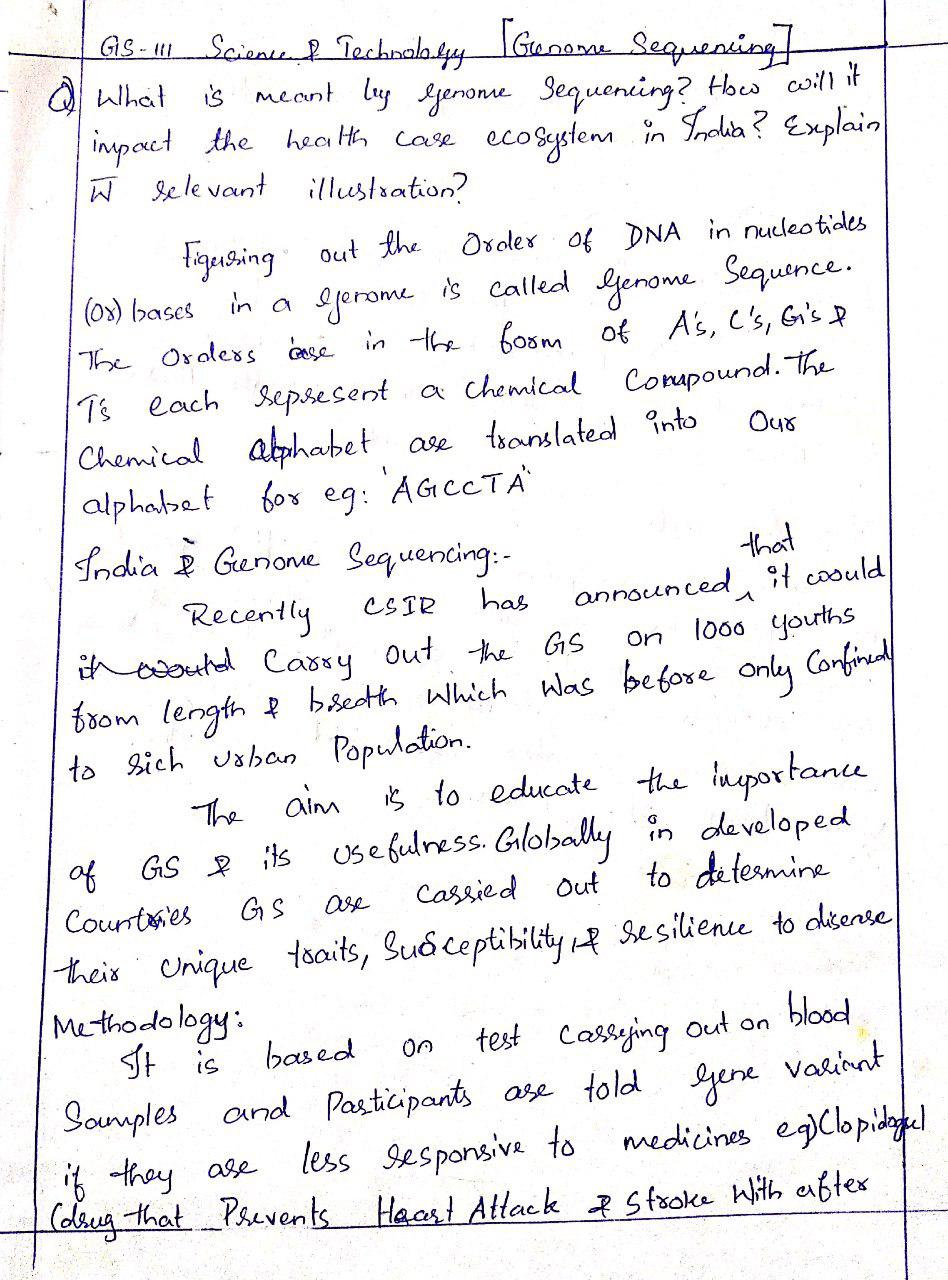 GS-III Science & Technology [Genome Sequencing]
Q) What is meant by genome Sequencing? How will it
impact the health care ecosystem in India? Explain
w̄ relevant illustration?
Figuring out the Order of DNA in nucleotides
(Or) bases in a genome is called genome Sequence.
The Orders are in the form of A's, C's, G's &
T's each represent a Chemical Compound. The
Chemical alphabet are translated into Our
alphabet for eg: 'AGCCTA"
India & Genome Sequencing:-
that
Recently CSIR has announced ^ it would
it would Carry Out the GS on 1000 youths
from length & bredth Which Was before only Confined
to rich urban Population.
The aim is to educate the importance
of GS & its usefulness. Globally in developed
Countries GS are carried out to determine
their Unique traits, Susceptibility, & resilience to disease
Methodology:
It is based on test Carrying out on blood
Samples and Participants are told gene variant
if they are less responsive to medicines eg) Clopidogrel
(drug that Prevents Heart Attack & Stroke With after